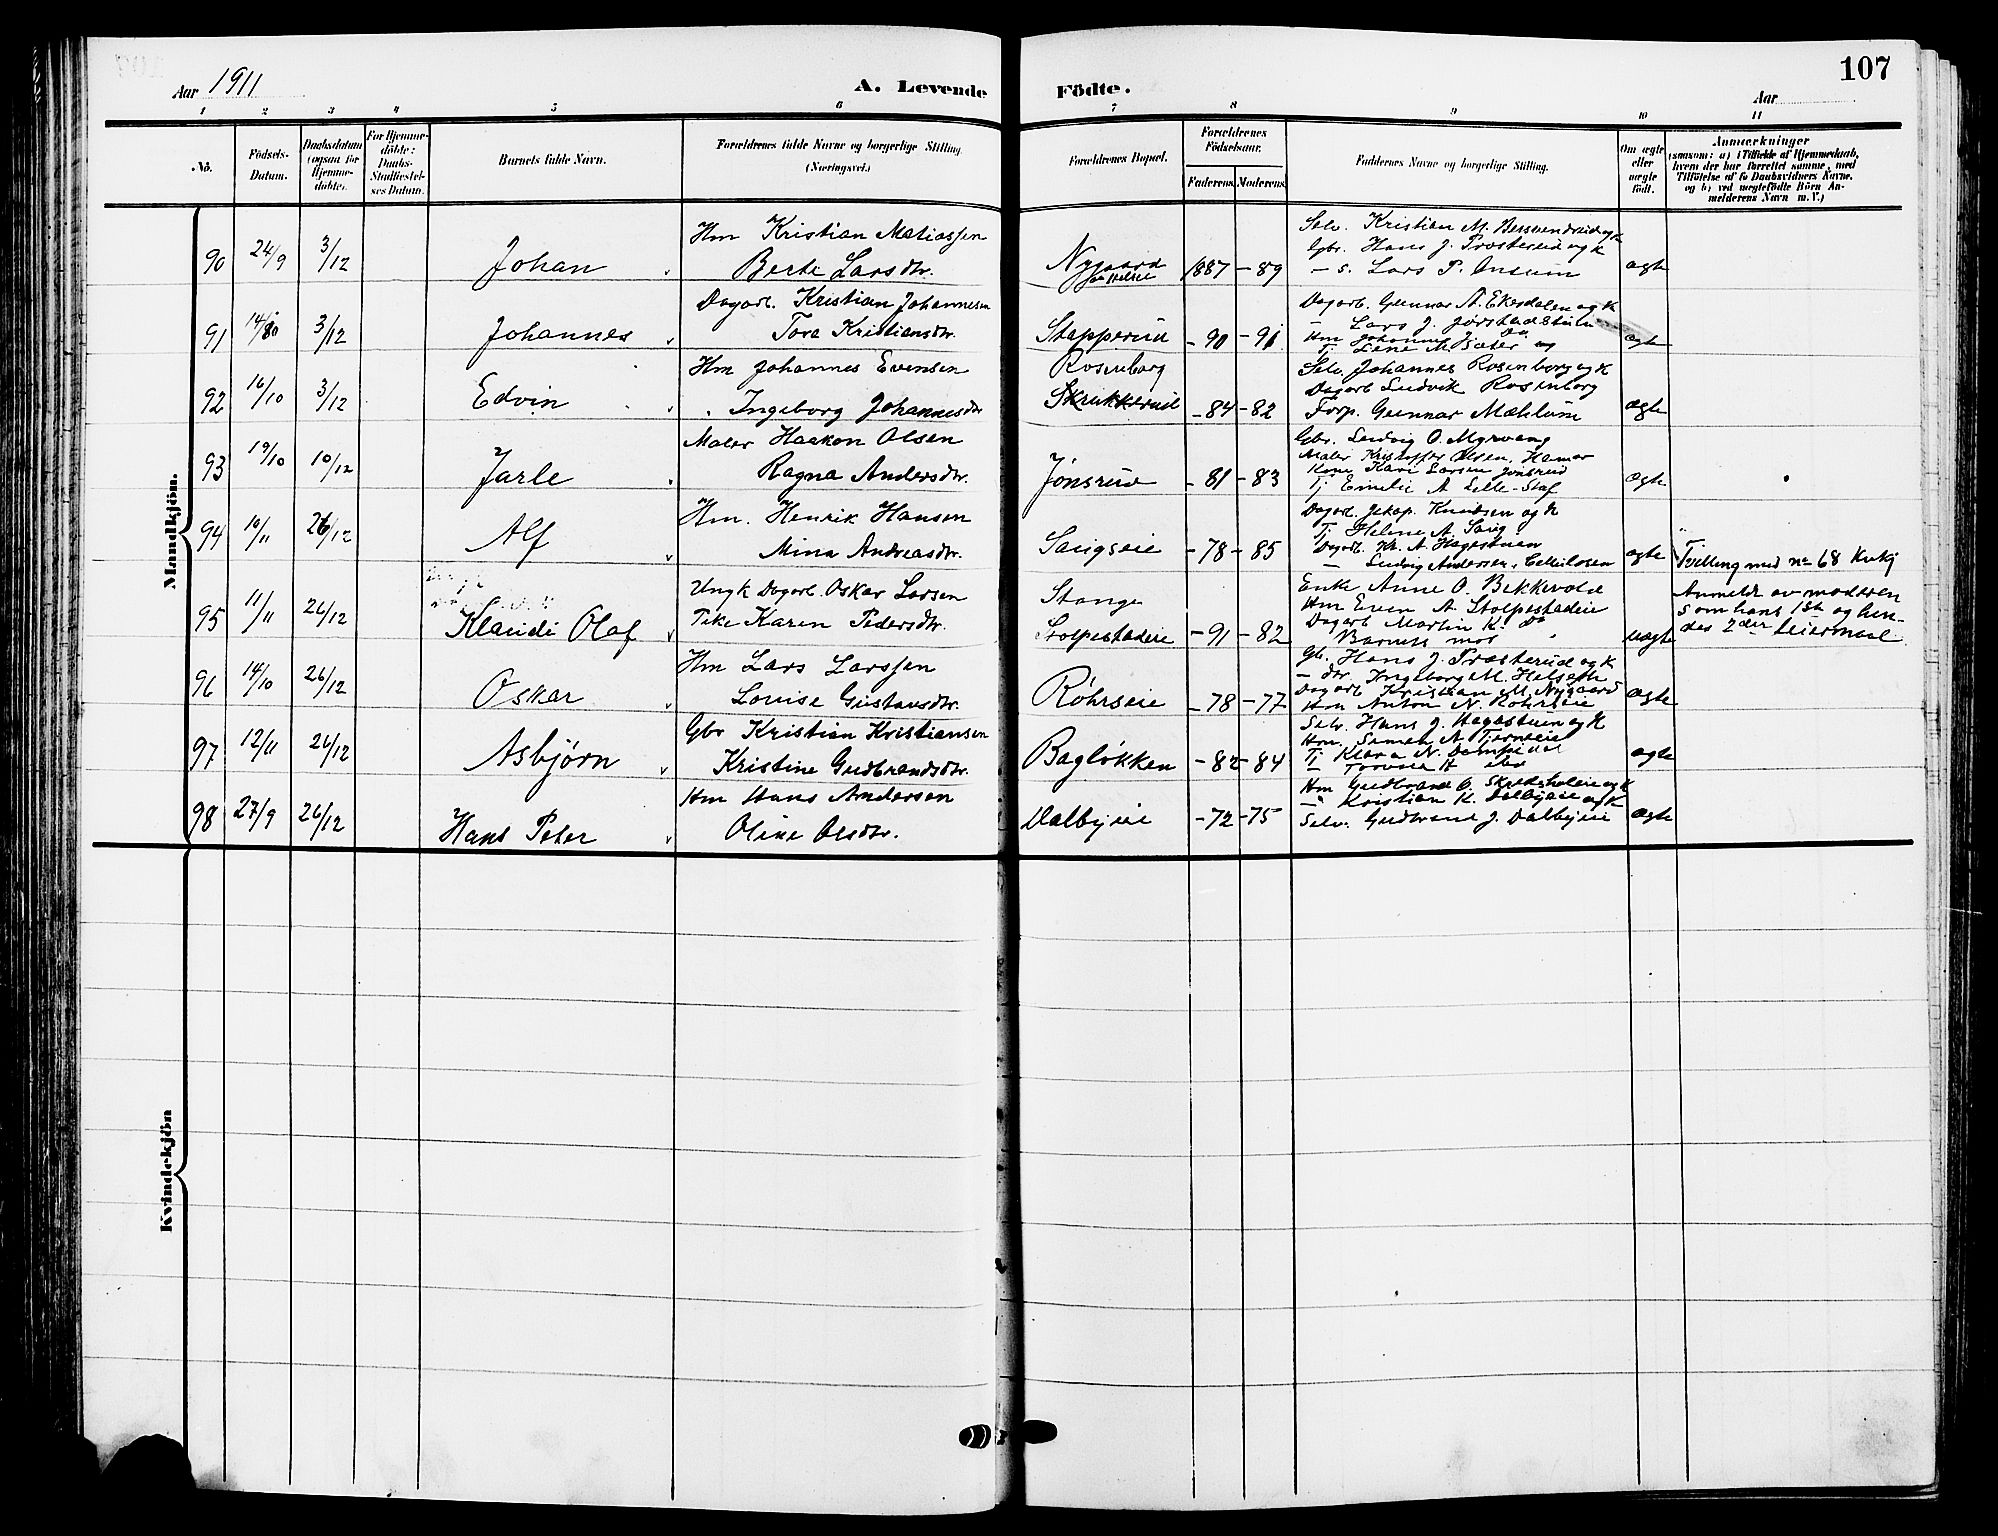 107
Aar 1911
A. Levende
Födte.
Aar
1 2 3 4 5 6 7 8 9 10 11
No.
Födsels-Datum.
Daabsdatum (ogsaa for Hjemme-döbte).
For Hjemme-döbte: Daabs-Stadfæstel-ses Datum.
Barnets fulde Navn.
Forældrenes fulde Navne og borgerlige Stilling (Næringsvei.)
Forældrenes Bopæl.
Forældrenes Födselsaar.
Faderens. Moderens.
Faddernes Navne og borgerlige Stilling.
Om ægte eller uægte födt.
Anmærkninger
(saasom: a) i Tilfælde af Hjemmedaab,
hvem der har forrettet samme, med
Tilföielse af to Daabsvidners Navne,
og b) ved uægtefödte Börn An-
melderens Navn m. V.)
Mandkjön.
90 24/9 3/12 Johan
Hm Kristian Matiassen
Berte Larsdtr.
Nygaard
1887 – 89
Selv. Kristian M.
Gbr. Hans J. Prosterud og k
– s. Lars P. Onsum
ægte
91 3/12 Johannes
Dagarb. Kristian Johannesen
Tora Kristiansdtr.
Stapperud
– 90 – 91
Dagarb. Gunnar A. Ekesdalen og k
Lars J. Jørstadstuen
ægte
92 16/10 3/12 Edvin
Hm Johannes Evensen
Ingeborg Johannesdtr
Rosenborg
Skrukkerud
– 84 – 82
Selv. Johannes Rosenborg og k
Dagarb Ludvik Rosenborg
Forp. Gunnar Mæhlum
ægte
93 19/10 10/12 Jarle
Maler Haakon Olsen
Ragna Andersdtr.
Jønsrud
– 81 – 83
Gbr. Ludvig O. Myrvang
Maler Kristoffer Olsen, Hamar
Kone Kari Larsen Jønsrud
Tj Emelie A Lille-Staf
ægte
94 10/11 26/12 Alf
Hm. Henrik Hansen
Mina Andreasdtr.
Saugseie
– 78 – 85
Dagarb. Jakop Knudsen og k
Tj Helene A. Saug
Dagarb. Kr. A. Hagestuen
– Ludvig Andersen, Cellulosen
ægte
Tvilling med no 68 Kvkj
95 11/11 26/12 Klaudi Olaf
Ungk Dagarb. Oskar Larsen
Pike Karen Pedersdtr.
Stange
Stolpestadeie
– 91 – 82
Enke Anne O. Bekkevold
Hm Even A. Stolpestadeie
Dagarb Martin K. Do
Barnets mor
uægte
Anmeldt av moderen
som hans 1ste og hen-
des 2den Leiermaal
96 14/10 26/12 Oskar
Hm Lars Larssen
Louise Gustavsdtr.
Røhrseie
– 78 – 77
Gb. Hans J. Prosterud og k
– dtr. Ingeborg M. Helseth
Dagarb Kristian M. Nygaard
Hm Anton N. Røhrseie
ægte
97 12/11 26/12 Asbjørn
Gbr Kristian Kristiansen
Kristine Gudbrandsdtr.
Bagløkken
– 82 – 84
Selv. Hans J. Hagestuen og k
Hm. Simen A. Tjerneie
Tj Klara N.
ægte
98 27/9 26/12 Hans Peter
Hm Hans Andersen
Oline Olsdtr.
Dalbyeie
– 72 – 75
Hm Gudbrand O. og k
– Kristian K. Dalbyeie og k
Selv. Gudbrand J. Dalbyeie
ægte
Kvindekjön